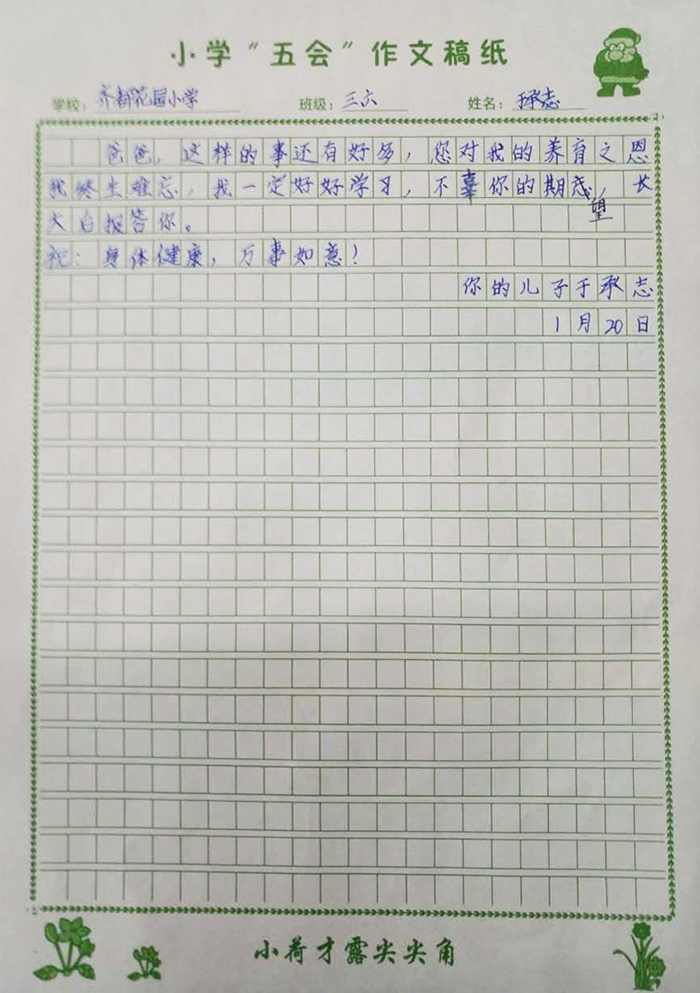 小学“五会”作文稿纸
学校: 齐都花园小学 班级: 三六 姓名: 于承志
爸爸,这样的事还有好多,您对我的养育之恩
我终生难忘,我一定好好学习,不辜你的期望,长
大后报答你。
祝:身体健康,万事如意!
你的儿子于承志
1月20日
小荷才露尖尖角